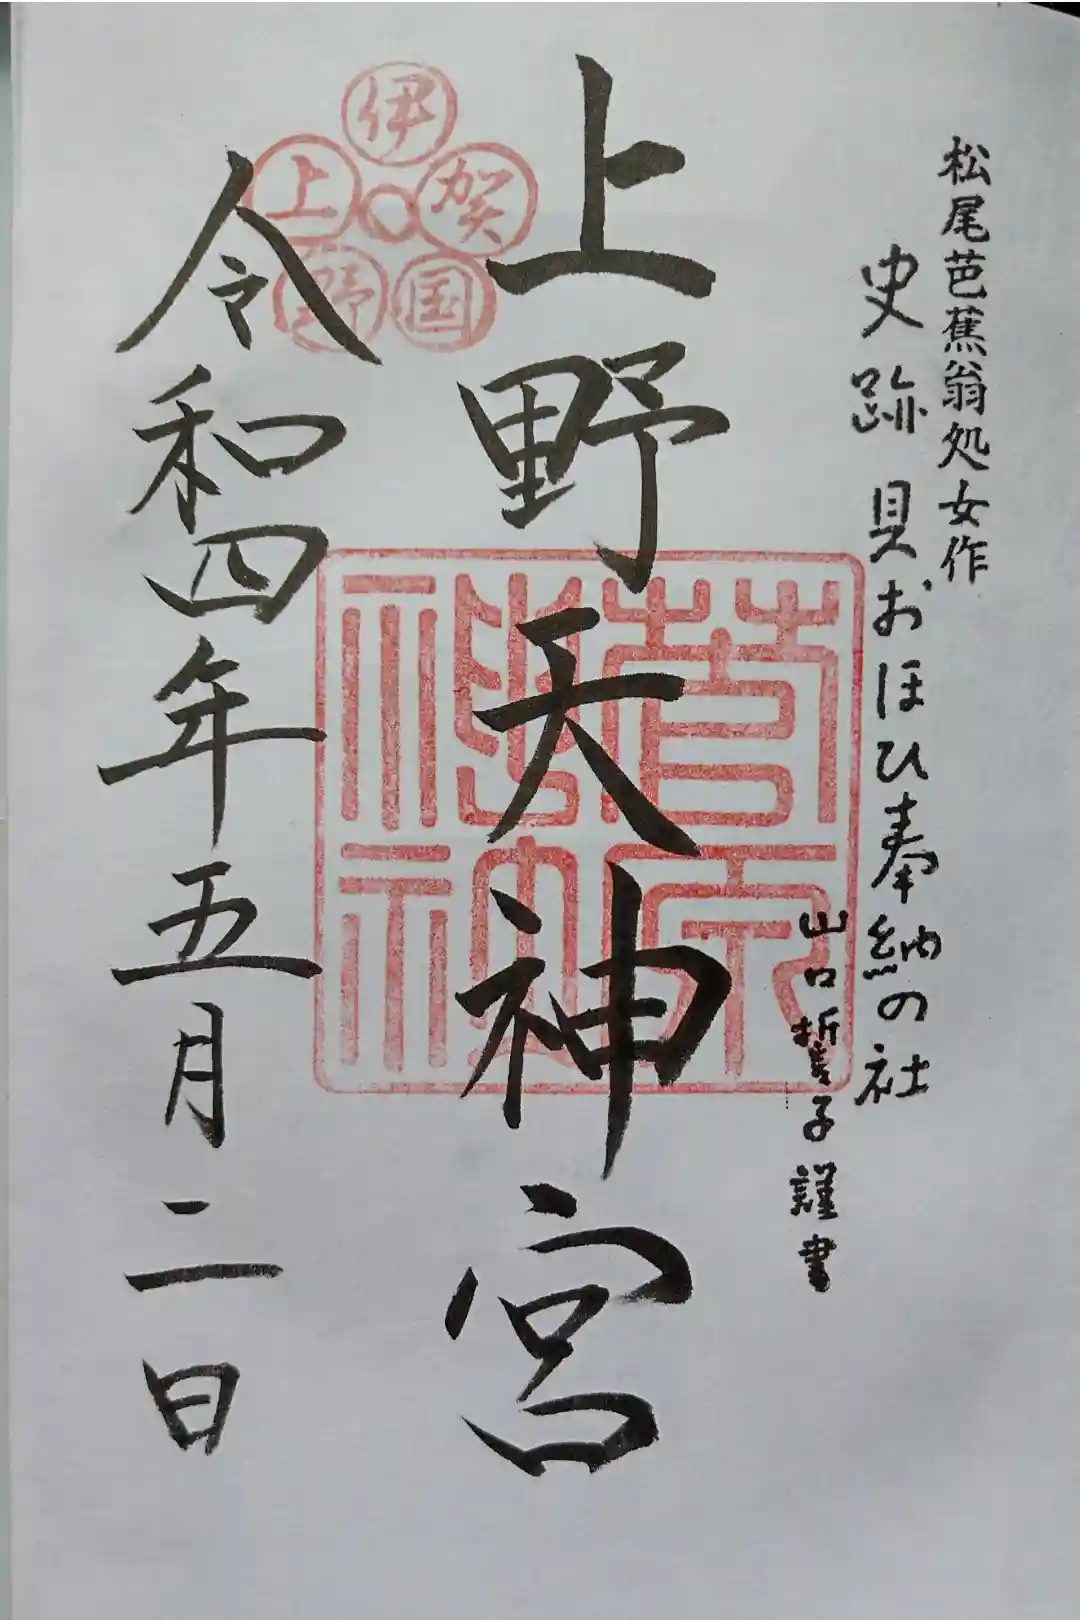 松尾芭蕉翁処女作
史跡 貝おほひ奉納の社
山口誓子謹書
上野天神宮
菅原
伊賀国上野
令和四年五月二日